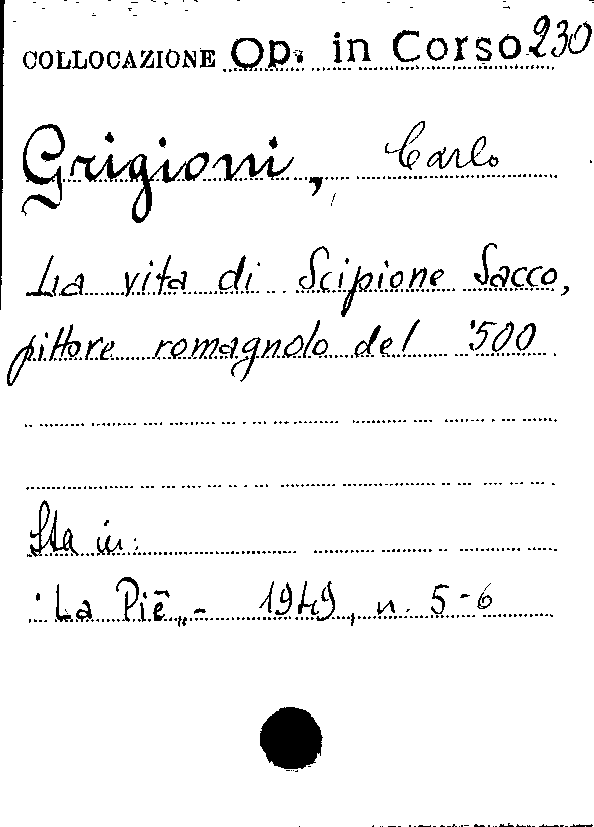 COLLOCAZIONE Op. in Corso 230
Grigioni, Carlo
La vita di Scipione Sacco,
pittore romagnolo del '500
Sta in:
"La Piē„- 1949, n. 5-6